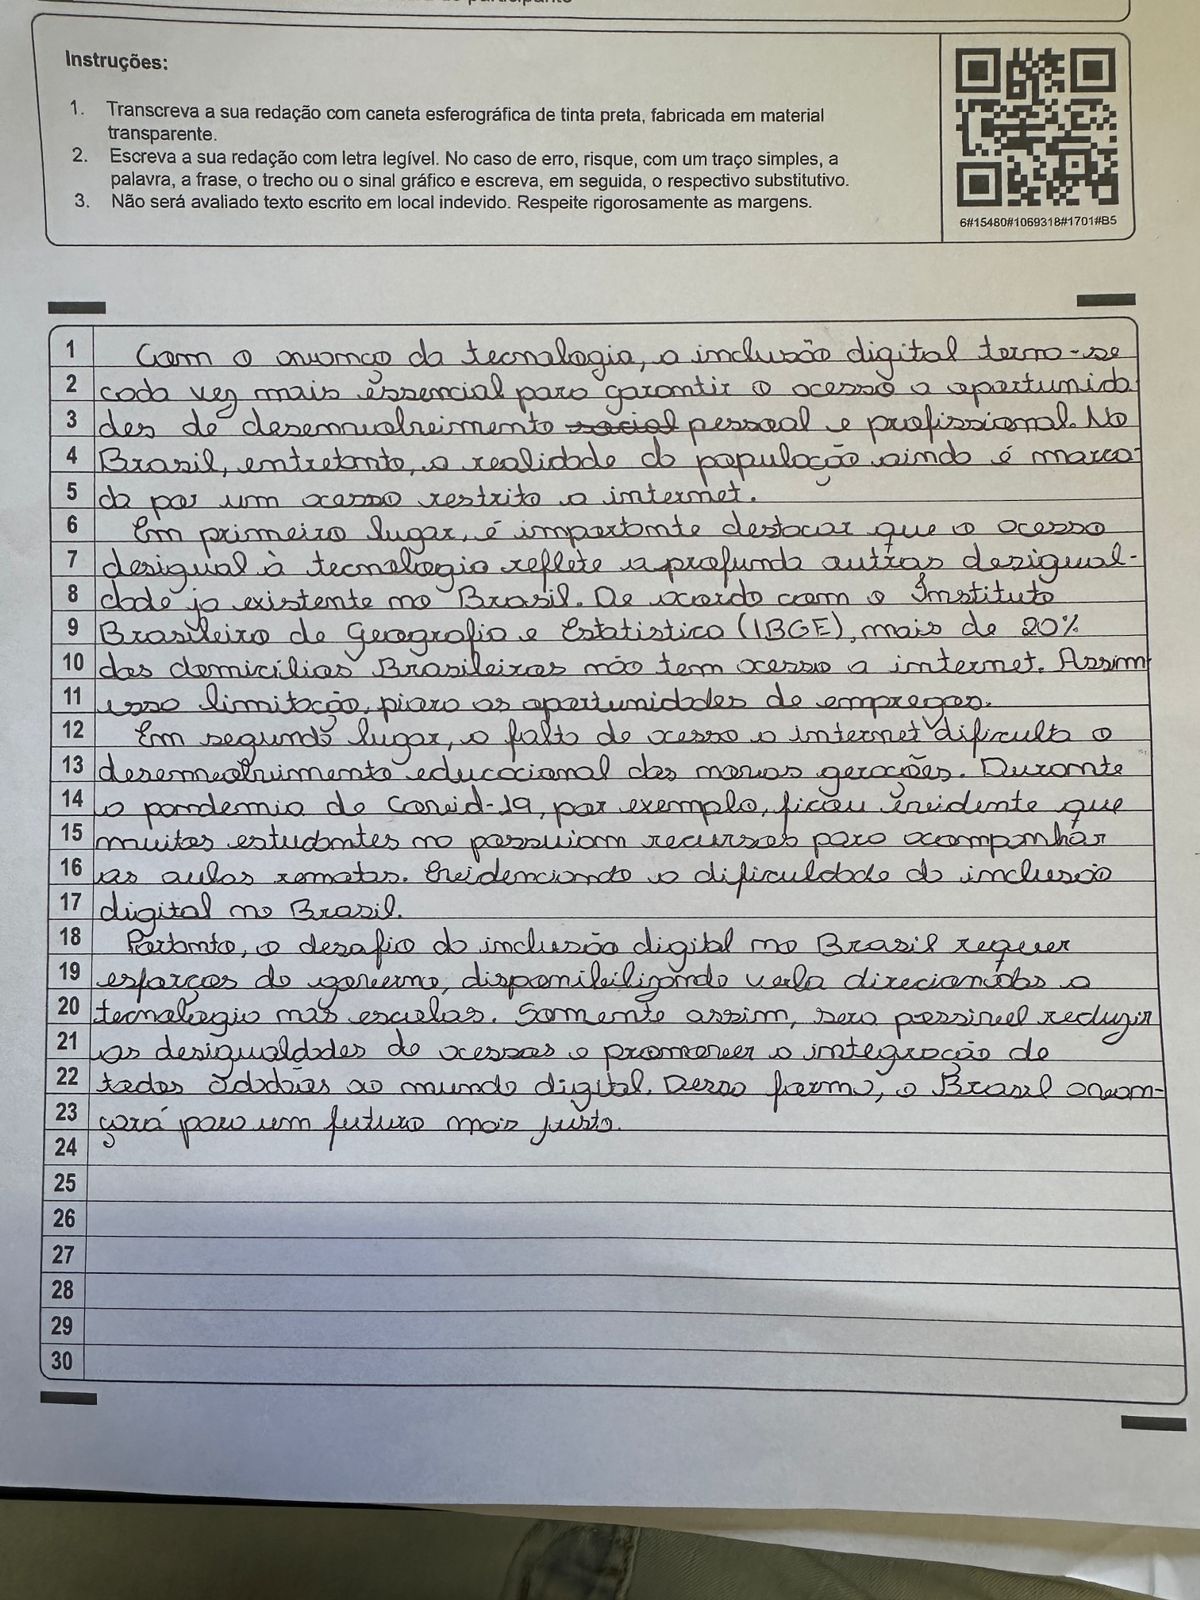 Instruções:
1. Transcreva a sua redação com caneta esferográfica de tinta preta, fabricada em material
transparente.
2. Escreva a sua redação com letra legível. No caso de erro, risque, com um traço simples, a
palavra, a frase, o trecho ou o sinal gráfico e escreva, em seguida, o respectivo substitutivo.
3. Não será avaliado texto escrito em local indevido. Respeite rigorosamente as margens.
6#15480#1069318#1701#B5
1 Com o avanço da tecnologia, a inclusão digital torno-se
2 cada vez mais essencial para garantir o acesso a oportunida
3 des de desenvolvimento social pessoal e profissional. No
4 Brasil, entretanto, a realidade da população ainda é marca-
5 da por um acesso restrito a internet.
6 Em primeiro lugar, é importante destacar que o acesso
7 desigual à tecnologia reflete a profunda outras desigual-
8 dade ja existente no Brasil. De acordo com o Instituto
9 Brasileiro de Geografia e Estatistica (IBGE), mais de 20%
10 dos domicílios Brasileiros não tem acesso a internet. Assim
11 essa limitação, piora as oportunidades de empregos.
12 Em segundo lugar, a falta de acesso a internet dificulta o
13 desenvolvimento educacional das novas gerações. Durante
14 a pandemia de Covid-19, por exemplo, ficou evidente que
15 muitos estudantes no possuiam recursos para acompanhar
16 as aulas remotas. Evidenciando a dificuldade da inclusão
17 digital no Brasil.
18 Portanto, o desafio da inclusão digital no Brasil requer
19 esforços do governo, disponibilizando verba direcionadas a
20 tecnologia nas escolas. Somente assim, sera possivel reduzir
21 as desigualdades de acessos e promover a integração de
22 todos cidadões ao mundo digital. Dessa forma, o Brasil avan-
23 çará para um futuro mais justo.
24
25
26
27
28
29
30